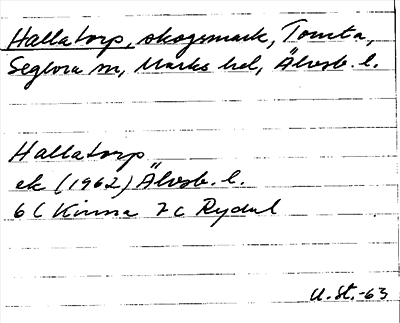 Hallatorp, skogsmark, Tomta,
Seglora sn, Marks hd, Älvsb. l.
Hallatorp
ek (1962) Älvsb. l.
6 C Kinna 7 c Rydal
U. St. -63